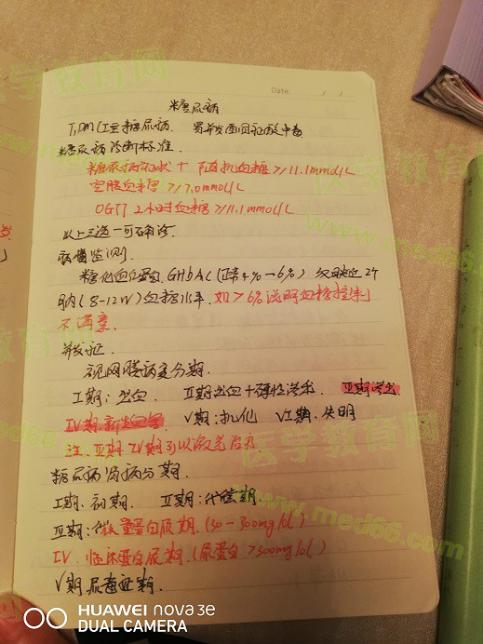 Date / /
糖尿病
T1DM(Ⅰ型糖尿病. 易并发酮症酸中毒
糖尿病诊断标准.
糖尿病症状 + 随机血糖≥11.1mmol/L
空腹血糖 ≥7.0mmol/L
OGTT 2小时血糖≥11.1mmol/L
以上三选一可确诊.
病情监测.
糖化血红蛋白. GHbAC(正常4%→6%) 反映近2个
月内(8-12W)血糖水平. 如>6%说明血糖控制
不满意.
并发症.
视网膜病变分期.
Ⅰ期: 出血 Ⅱ期出血+硬性渗出 Ⅲ期渗出
Ⅳ期新生血管 Ⅴ期:机化 Ⅵ期.失明
注. Ⅲ期 Ⅳ期可以激光治疗
糖尿病肾病分期.
Ⅰ期.初期. Ⅱ期:代偿期
Ⅲ期:微量蛋白尿期.(30-300mg/d)
Ⅳ. 临床蛋白尿期.(尿蛋白>300mg/d)
Ⅴ期尿毒症期.
医学教育网
www.med66.com
HUAWEI nova 3e
DUAL CAMERA